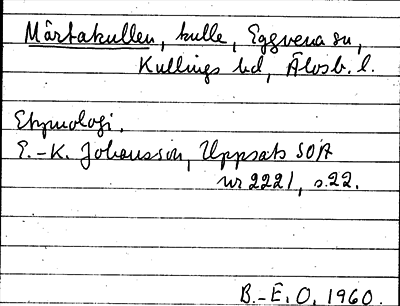 Mårtakullen, kulle, Eggvena sn,
Kullings hd, Älvsb. l.
Etymologi.
E.-K. Johansson, Uppsats SOA
nr 2221, s. 22.
B.-E. O. 1960.